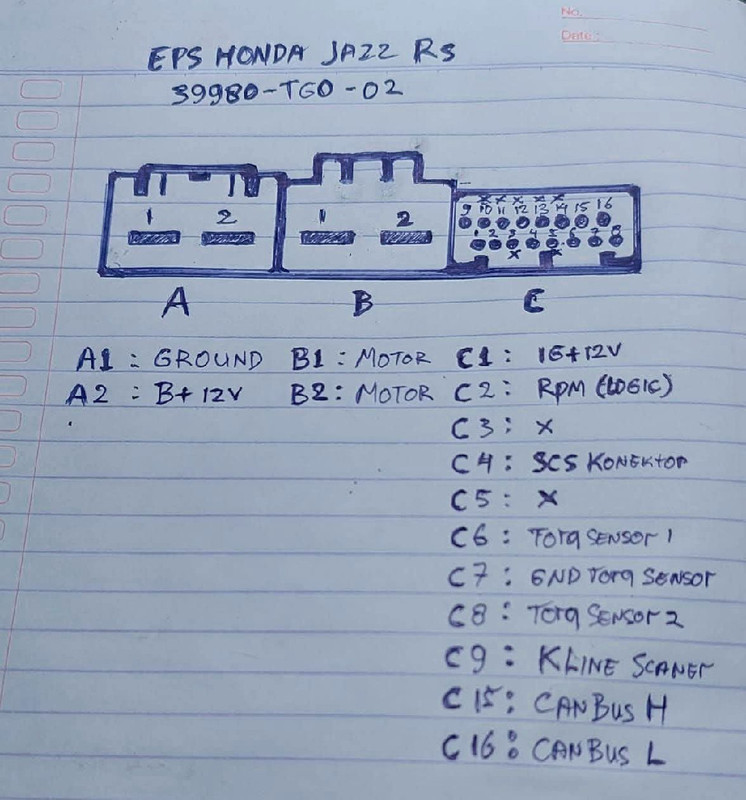 No.
Date:
EPS HONDA JAZZ RS
39980-TG0-02
1 2 1 2
9 10 11 12 13 14 15 16
1 2 3 4 5 6 7 8
x x
A B C
A1 : GROUND B1 : MOTOR C1 : IG+12V
A2 : B+ 12V B2 : MOTOR C2 : RPM (LOGIC)
C3 : X
C4 : SCS KONEKTOR
C5 : X
C6 : TorQ SENSOR 1
C7 : GND TorQ SENSOR
C8 : TorQ SENSOR 2
C9 : KLINE SCANER
C15 : CANBUS H
C16 : CANBUS L